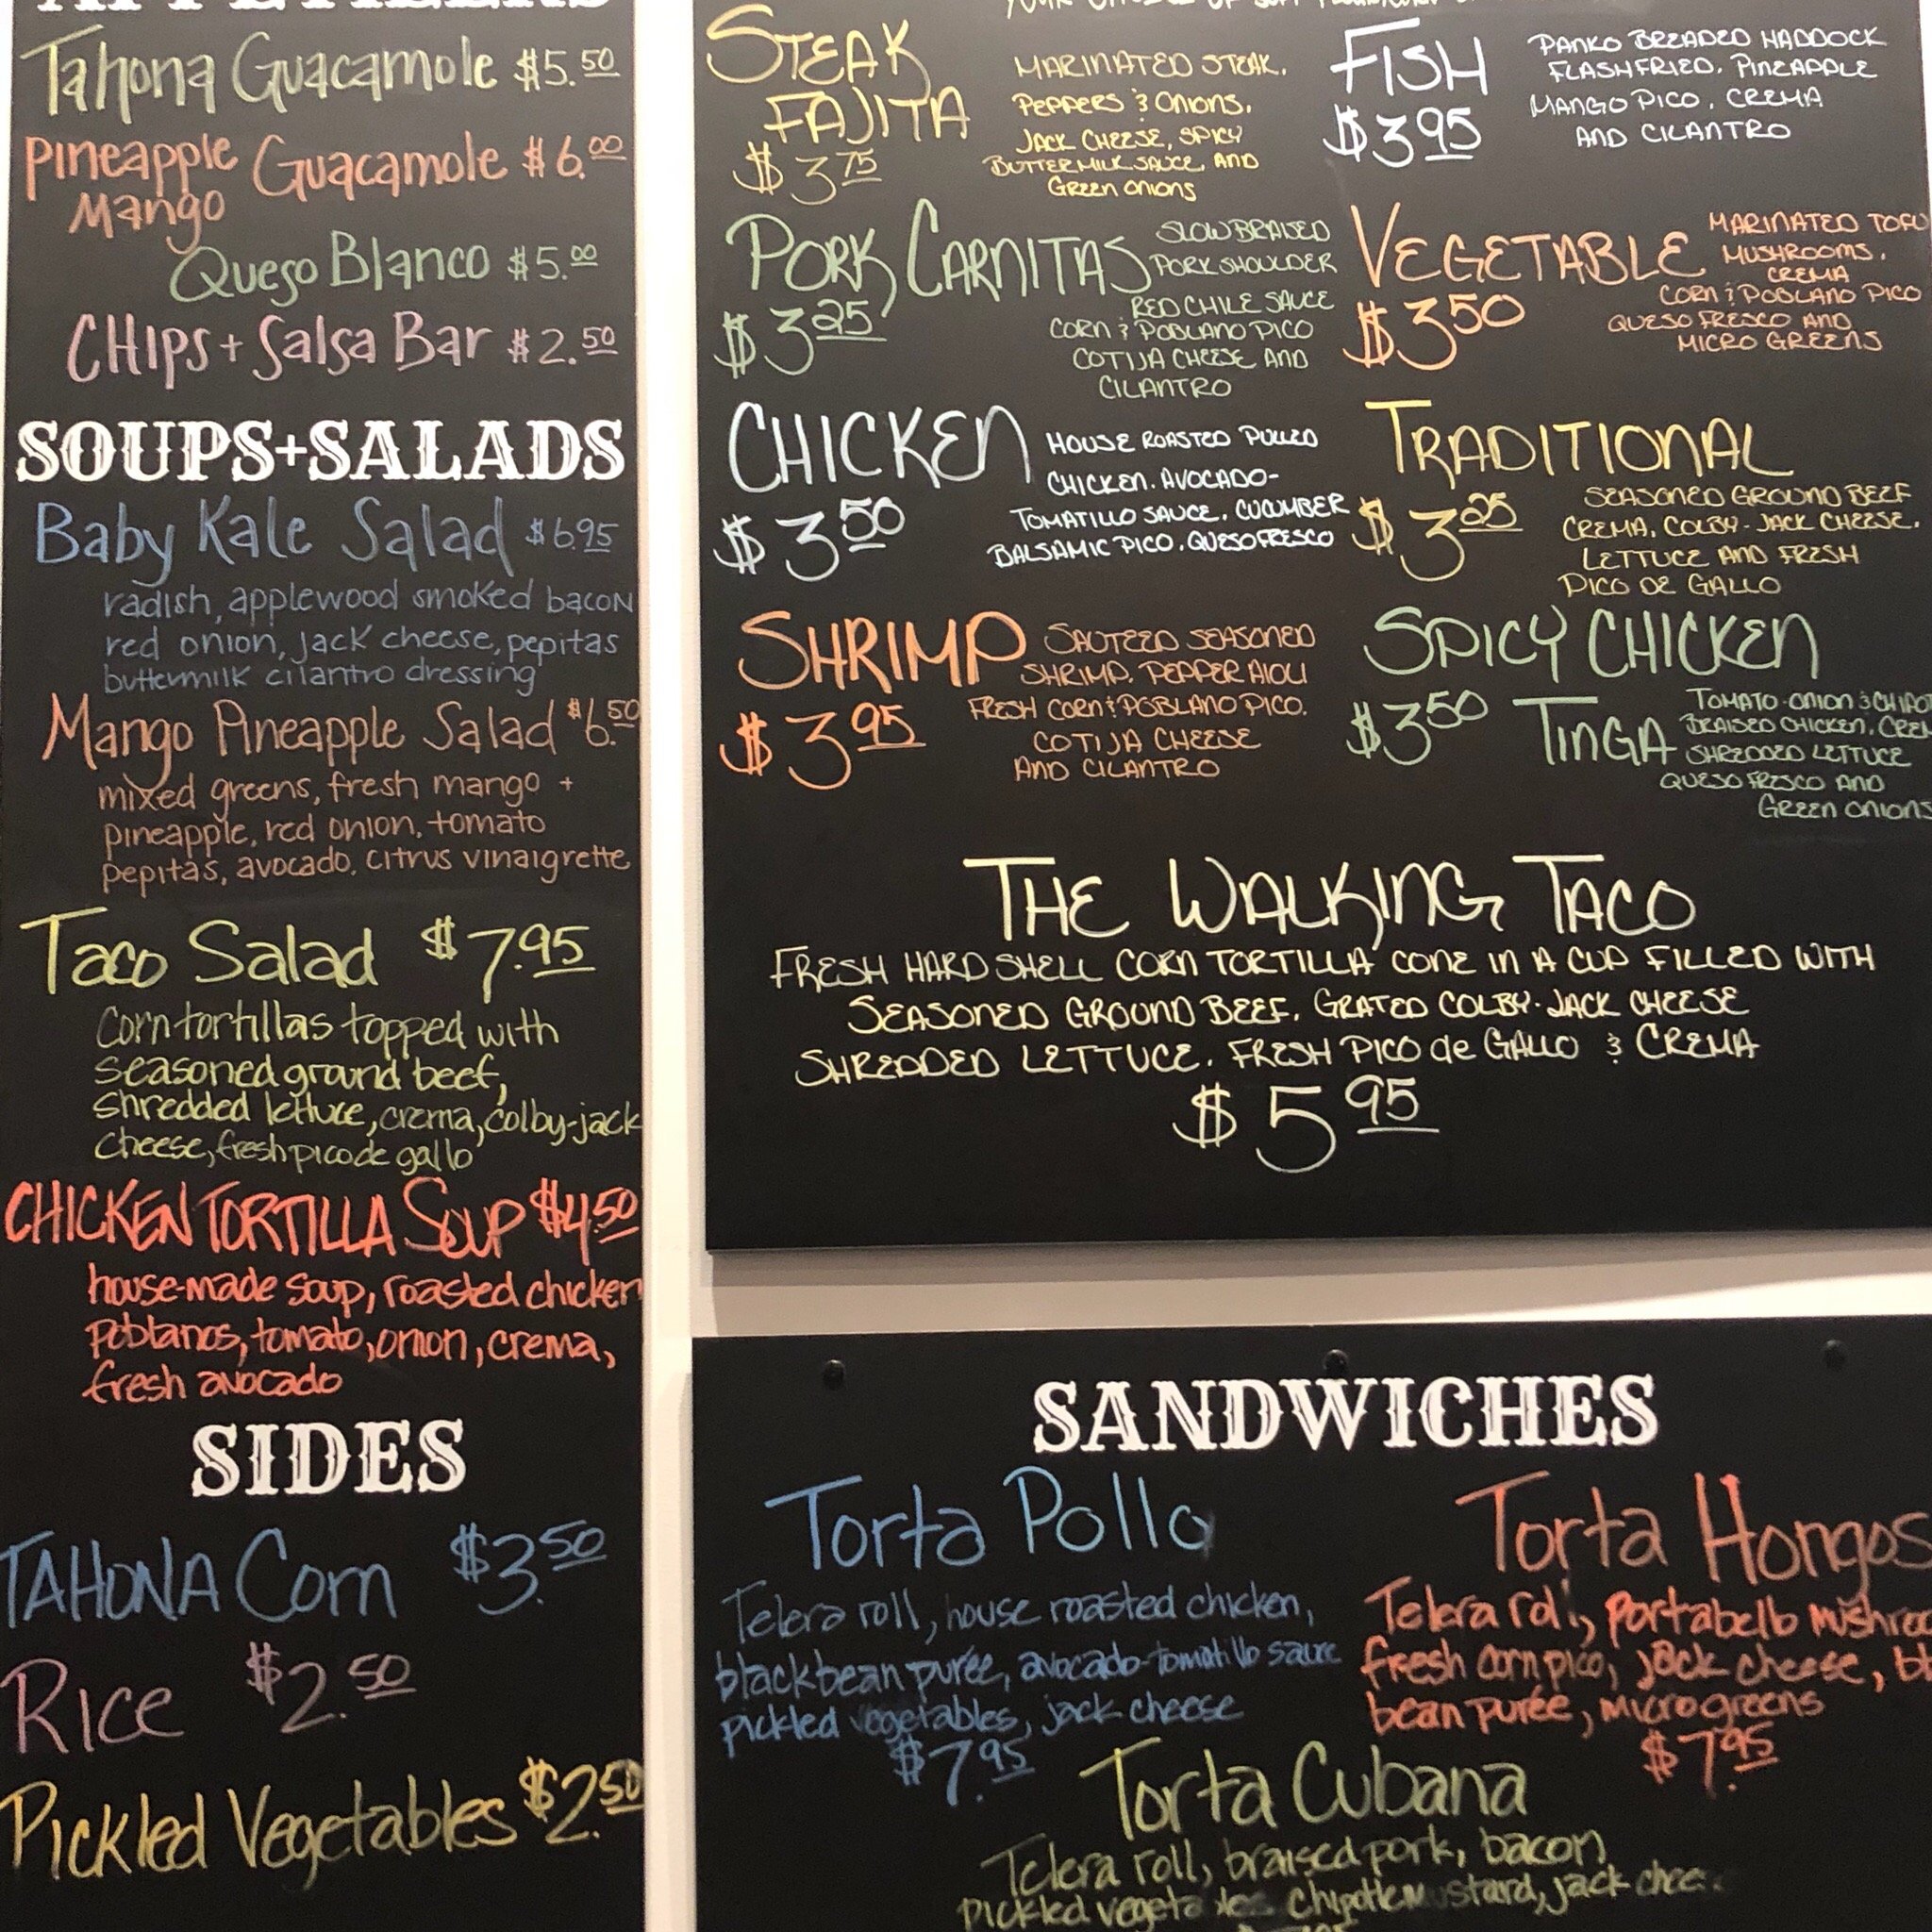 APPETIZERS
Tahona Guacamole $5.50
Pineapple Mango Guacamole $6.00
Queso Blanco $5.00
CHIPS + Salsa Bar $2.50
SOUPS+SALADS
Baby Kale Salad $6.95
radish, applewood smoked bacon
red onion, jack cheese, pepitas
buttermilk cilantro dressing
Mango Pineapple Salad $6.50
mixed greens, fresh mango +
pineapple, red onion, tomato
pepitas, avocado, citrus vinaigrette
Taco Salad $7.95
Corn tortillas topped with
seasoned ground beef,
shredded lettuce, crema, colby-jack
cheese, fresh pico de gallo
CHICKEN TORTILLA SOUP $4.50
house-made soup, roasted chicken
poblanos, tomato, onion, crema,
fresh avocado
SIDES
TAHONA Corn $3.50
RICE $2.50
Pickled Vegetables $2.50
STEAK
FAJITA
$3.75
MARINATED STEAK,
PEPPERS & ONIONS,
JACK CHEESE, SPICY
BUTTERMILK SAUCE, AND
GREEN ONIONS
FISH
$3.95
PANKO BREADED HADDOCK
FLASH FRIED, PINEAPPLE
MANGO PICO, CREMA
AND CILANTRO
PORK CARNITAS
$3.25
SLOW BRAISED
PORK SHOULDER
RED CHILE SAUCE
CORN & POBLANO PICO
COTIJA CHEESE AND
CILANTRO
VEGETABLE
$3.50
MARINATED TOFU
MUSHROOMS,
CREMA
CORN & POBLANO PICO
QUESO FRESCO AND
MICRO GREENS
CHICKEN
$3.50
HOUSE ROASTED PULLED
CHICKEN, AVOCADO-
TOMATILLO SAUCE, CUCUMBER
BALSAMIC PICO, QUESO FRESCO
TRADITIONAL
$3.25
SEASONED GROUND BEEF
CREMA, COLBY-JACK CHEESE,
LETTUCE AND FRESH
PICO DE GALLO
SHRIMP
$3.95
SAUTEED SEASONED
SHRIMP, PEPPER AIOLI
FRESH CORN & POBLANO PICO,
COTIJA CHEESE
AND CILANTRO
SPICY CHICKEN
$3.50 TINGA
TOMATO-ONION &
BRAISED CHICKEN,
SHREDDED LETTUCE
QUESO FRESCO AND
GREEN ONIONS
THE WALKING TACO
FRESH HARD SHELL CORN TORTILLA CONE IN A CUP FILLED WITH
SEASONED GROUND BEEF, GRATED COLBY-JACK CHEESE
SHREDDED LETTUCE, FRESH PICO de GALLO & CREMA
$5.95
SANDWICHES
Torta Pollo
Telera roll, house roasted chicken,
black bean purée, avocado-tomatillo sauce
pickled vegetables, jack cheese
$7.95
Torta Hongos
Telera roll, portabello
fresh corn pico, jack cheese,
bean purée, microgreens
$7.95
Torta Cubana
Telera roll, braised pork, bacon
pickled chipotle mustard, jack